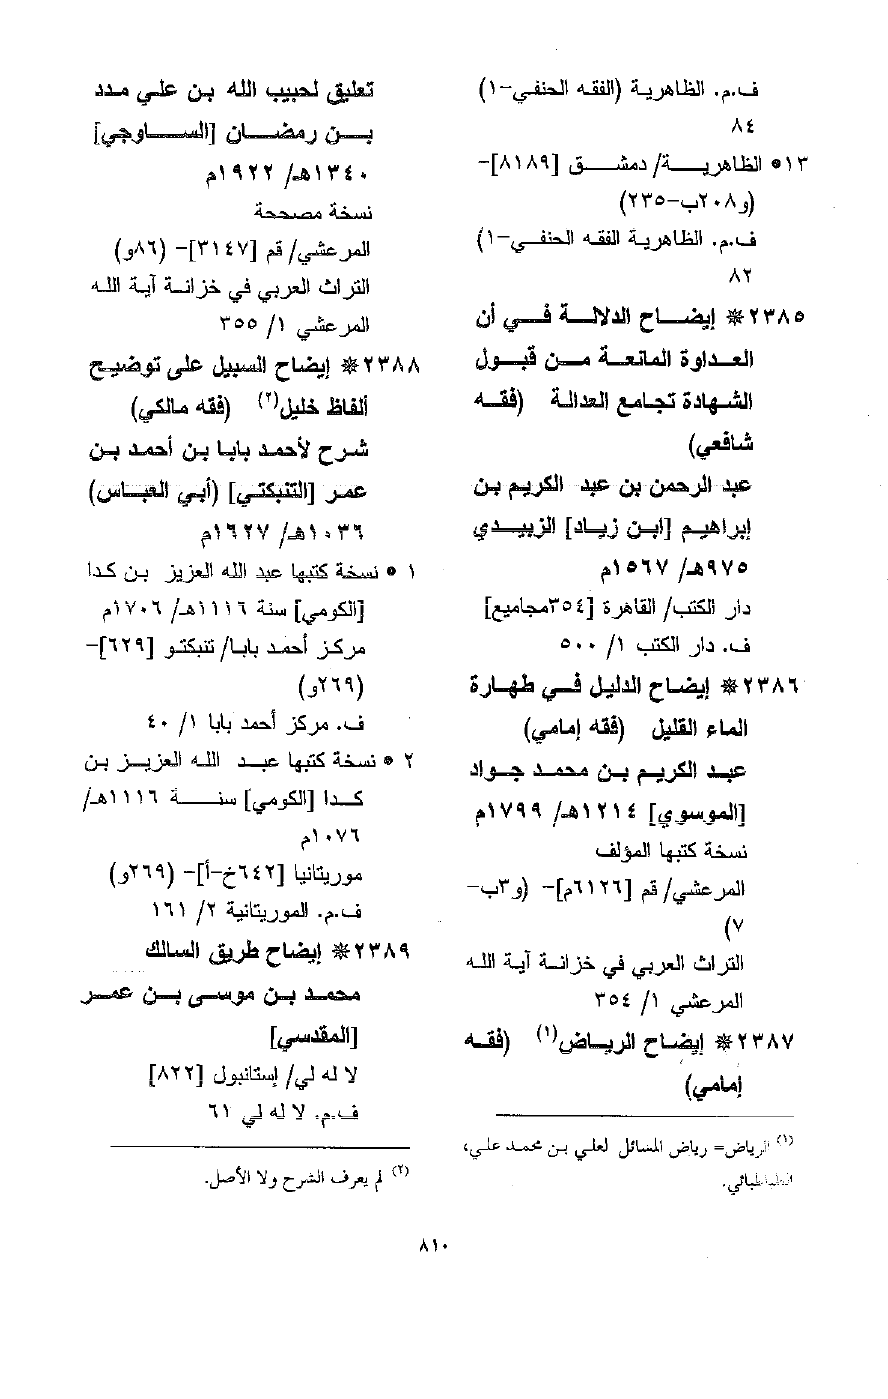 ف.م. الظاهرية (الفقه الحنفي-١)
٨٤
١٣ * الظاهرية/ دمشق [٨١٨٩]-
(و٢٠٨ب-٢٣٥)
ف.م. الظاهرية الفقه الحنفي-١)
٨٢
٢٣٨٥ * إيضاح الدلالة في أن
العداوة المانعة من قبول
الشهادة تجامع العدالة (فقه
شافعي)
عبد الرحمن بن عبد الكريم بن
إبراهيم [ابن زياد] الزبيدي
٩٧٥هـ/ ١٥٦٧م
دار الكتب/ القاهرة [٣٥٤مجاميع]
ف. دار الكتب ١/ ٥٠٠
٢٣٨٦ * إيضاح الدليل في طهارة
الماء القليل (فقه إمامي)
عبد الكريم بن محمد جواد
[الموسوي] ١٢١٤هـ/ ١٧٩٩م
نسخة كتبها المؤلف
المرعشي/ قم [٦١٢٦م]- (و٣ب-
٧)
التراث العربي في خزانة آية الله
المرعشي ١/ ٣٥٤
٢٣٨٧ * إيضاح الرياض(١) (فقه
إمامي)
(١) الرياض= رياض المسائل لعلي بن محمد علي،
الطباطبائي.
تعليق لحبيب الله بن علي مدد
بن رمضان [الساوجي]
١٣٤٠هـ/ ١٩٢٢م
نسخة مصححة
المرعشي/ قم [٣١٤٧]- (٨٦و)
التراث العربي في خزانة آية الله
المرعشي ١/ ٣٥٥
٢٣٨٨ * إيضاح السبيل على توضيح
ألفاظ خليل(٢) (فقه مالكي)
شرح لأحمد بابا بن أحمد بن
عمر [التنبكتي] (أبي العباس)
١٠٣٦هـ/ ١٦٢٧م
١ * نسخة كتبها عبد الله العزيز بن كدا
[الكومي] سنة ١١١٦هـ/ ١٧٠٦م
مركز أحمد بابا/ تنبكتو [٦٢٩]-
(٢٦٩و)
ف. مركز أحمد بابا ١/ ٤٠
٢ * نسخة كتبها عبد الله العزيز بن
كدا [الكومي] سنة ١١١٦هـ/
١٠٧٦م
موريتانيا [٦٤٢خ-أ]- (٢٦٩و)
ف.م. الموريتانية ٢/ ١٦١
٢٣٨٩ * إيضاح طريق السالك
محمد بن موسى بن عمر
[المقدسي]
لا له لي/ إستانبول [٨٢٢]
ف.م. لا له لي ٦١
(٢) لم يعرف الشرح ولا الأصل.
٨١٠